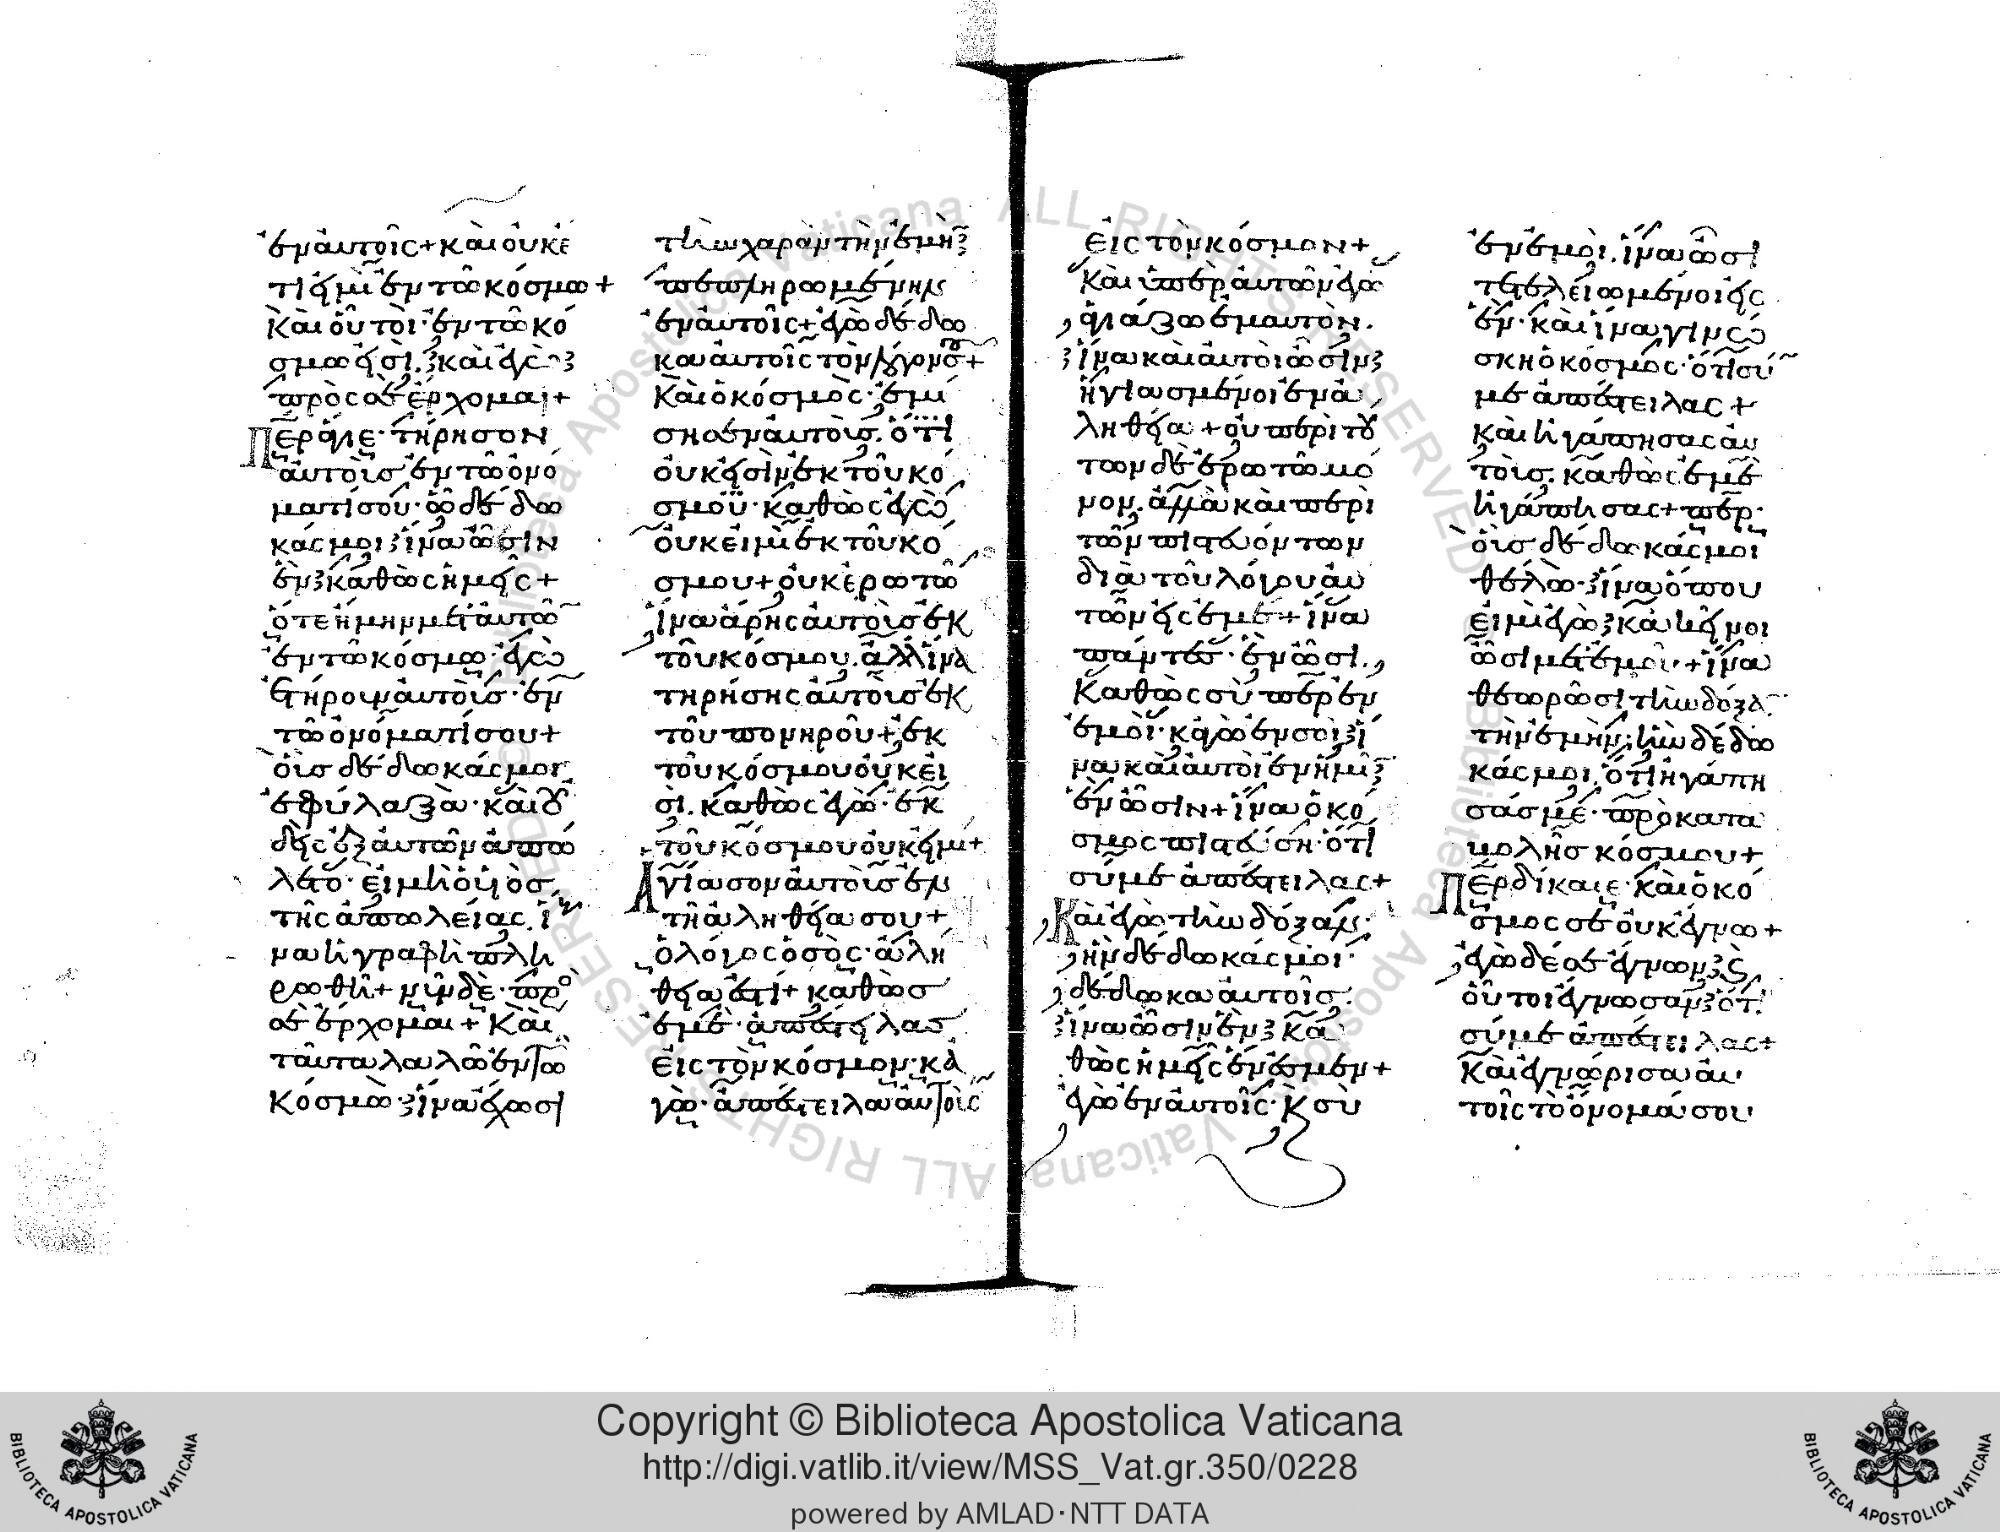 ἐν αὐτοῖς + καὶ οὐκέ
τι εἰμὶ ἐν τῶ κόσμω +
Καὶ οὗτοι ἐν τῶ κό
σμω εἰσὶ. καὶ ἐγὼ
πρὸς σὲ ἔρχομαι +
Περ ἅγιε· τήρησον
αὐτοὺς ἐν τῶ ὀνό
ματί σου· ὧ δέδω
κάς μοι ἵνα ὦσιν
ἓν καθὼς ἡμεῖς +
ὅτε ἤμην μετ αὐτῶ
ἐν τῶ κόσμω· ἐγὼ
ἐτήρουν αὐτοὺς ἐν
τῶ ὀνόματί σου +
οὓς δέδωκάς μοι
ἐφύλαξα· καὶ οὐ
δεὶς ἐξ αὐτῶν ἀπώ
λετο· εἰ μὴ ὁ υἱὸς
τῆς ἀπωλείας. ἵ
να ἡ γραφὴ πλη
ρωθῆ + νῦν δὲ πρὸ
σὲ ἔρχομαι + Καὶ
ταῦτα λαλῶ ἐν τῶ
κόσμω· ἵνα ἔχωσι
τὴν χαρὰν τὴν ἐμὴ
πεπληρωμένην
ἐν αὐτοῖς + ἐγὼ δέδω
κα αὐτοῖς τὸν λόγον σου +
Καὶ ὁ κόσμος· ἐμί
σησεν αὐτοὺς. ὅτι
οὐκ εἰσὶν ἐκ τοῦ κό
σμου· καθὼς ἐγὼ
οὐκ εἰμὶ ἐκ τοῦ κό
σμου + οὐκ ἐρωτῶ
ἵνα ἄρης αὐτοὺς ἐκ
τοῦ κόσμου. ἀλλ ἵνα
τηρήσης αὐτοὺς ἐκ
τοῦ πονηροῦ + ἐκ
τοῦ κόσμου οὐκ εἰ
σὶ. καθὼς ἐγὼ· ἐκ
τοῦ κόσμου οὐκ εἰμι +
Ἁγίασον αὐτοὺς ἐν
τῆ ἀληθεία σου +
ὁ λόγος ὁ σὸς· ἀλή
θεια ἐστι + καθὼς
ἐμὲ· ἀπέστειλας
εἰς τὸν κόσμον· κἀ
γὼ· ἀπέστειλα αὐτοὺς
εἰς τὸν κόσμον +
Καὶ ὑπὲρ αὐτῶν ἐγὼ
ἁγιάζω ἐμαυτὸν.
ἵνα καὶ αὐτοὶ ὦσιν
ἡγιασμένοι ἐν ἀ
ληθεία + οὐ περὶ τού
των δὲ ἐρωτῶ μό
νον. ἀλλὰ καὶ περὶ
τῶν πιστευόντων
διὰ τοῦ λόγου αὐ
τῶν εἰς ἐμὲ + ἵνα
πάντες· ἓν ὦσι.
Καθὼς σὺ περ ἐν
ἐμοὶ· κἀγὼ ἐν σοὶ ἵ
να καὶ αὐτοὶ ἐν ἡμῖ
ἓν ὦσιν + ἵνα ὁ κό
σμος πιστεύση· ὅτι
σύ με ἀπέστειλας +
Καὶ ἐγὼ τὴν δόξαν·
ἣν δέδωκάς μοι·
δέδωκα αὐτοῖς.
ἵνα ὦσιν ἓν κα
θὼς ἡμεῖς ἕν ἐσμεν +
ἐγὼ ἐν αὐτοῖς· κ σὺ
ἐν ἐμοὶ. ἵνα ὦσι
τετελειωμένοι εἰς
ἕν· καὶ ἵνα γινώ
σκη ὁ κόσμος· ὅτι σύ
με ἀπέστειλας +
καὶ ἠγάπησας αὐ
τοὺς. καθὼς ἐμὲ
ἠγάπησας + περ·
οὓς δέδωκάς μοι
θέλω· ἵνα ὅπου
εἰμὶ ἐγὼ κἀκεῖνοι
ὦσι μετ ἐμοῦ + ἵνα
θεωρῶσι τὴν δόξα
τὴν ἐμὴν· ἣν δέδω
κάς μοι. ὅτι ἠγάπη
σάς με· πρὸ κατα
βολῆς κόσμου +
Περ δίκαιε· καὶ ὁ κό
σμος σὲ οὐκ ἔγνω +
ἐγὼ δέ σε ἔγνων κ
οὗτοι ἔγνωσαν ὅτι
σύ με ἀπέστειλας +
Καὶ ἐγνώρισα αὐ
τοῖς τὸ ὄνομά σου
Copyright © Biblioteca Apostolica Vaticana
http://digi.vatlib.it/view/MSS_Vat.gr.350/0228
powered by AMLAD·NTT DATA
BIBLIOTECA APOSTOLICA VATICANA
BIBLIOTECA APOSTOLICA VATICANA